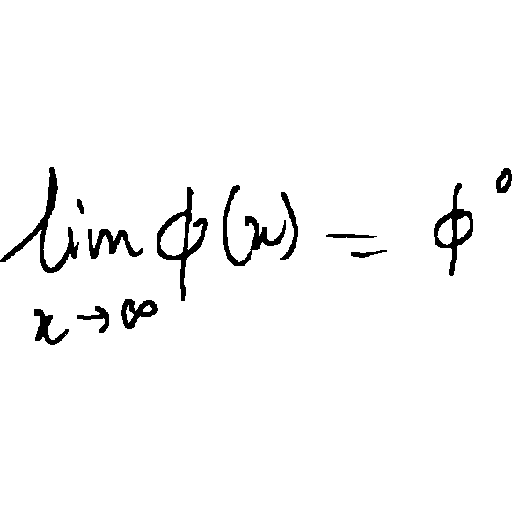 \lim_{x \to \infty} \phi(x) = \phi^{0}